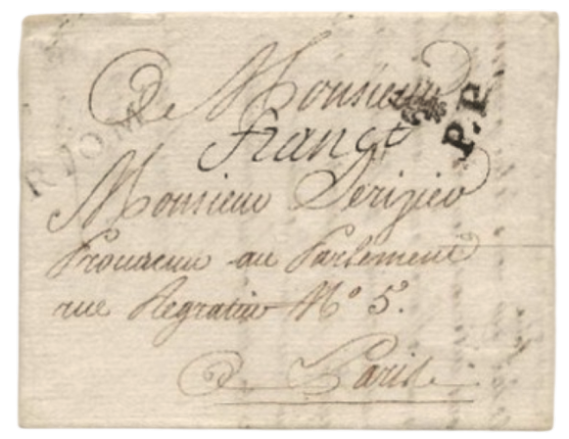 A Monsieur
P.P.
RIOM
franc
Monsieur Serizier
Procureur au Parlement
rue Regratier N° 5.
A Paris